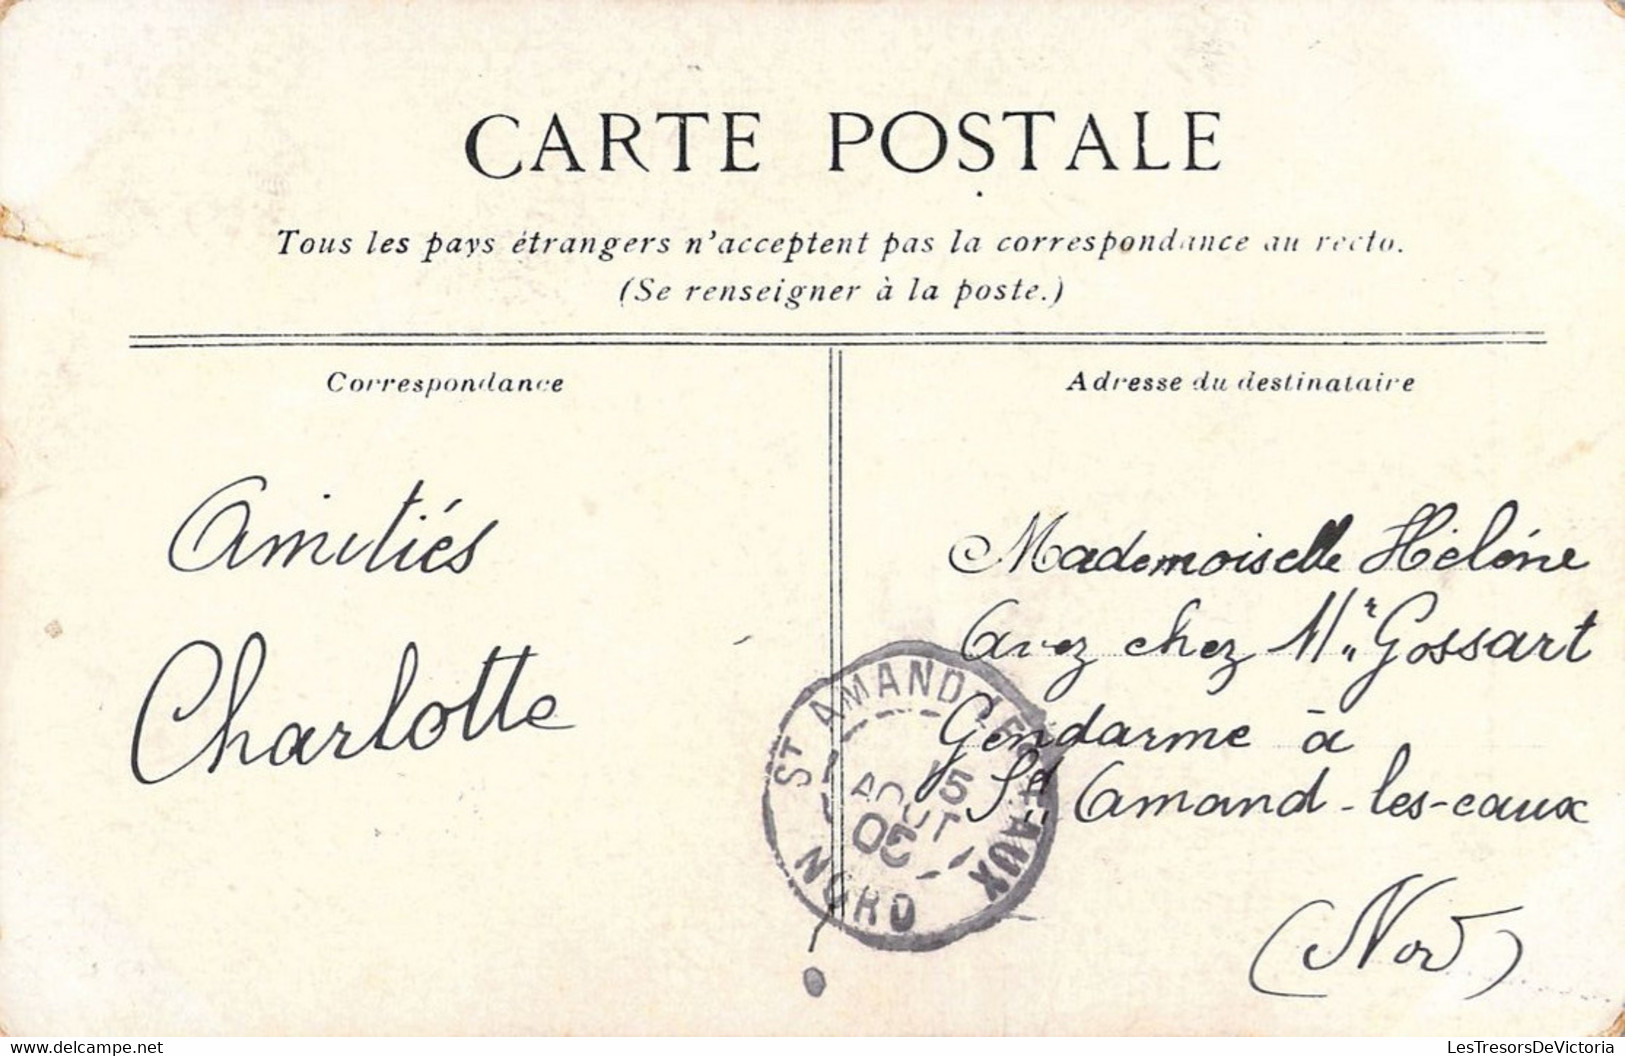 CARTE POSTALE
Tous les pays étrangers n'acceptent pas la correspondance au recto.
(Se renseigner à la poste.)
Correspondance
Amitiés
Charlotte
Adresse du destinataire
Mademoiselle Hélène
chez Mr Gossart
Gendarme à
St Amand-les-eaux
(Nord)
ST AMAND LES EAUX
15
AOUT
NORD
LesTresorsDeVictoria